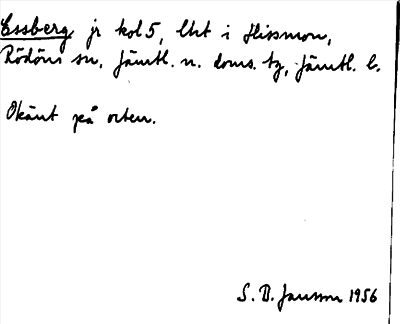 Essberg jr kol 5, lht i Hissmon,
Rödöns sn, Jämtl. n. doms. tg, Jämtl. l.
Okänt på orten.
S. B. Jansson 1956